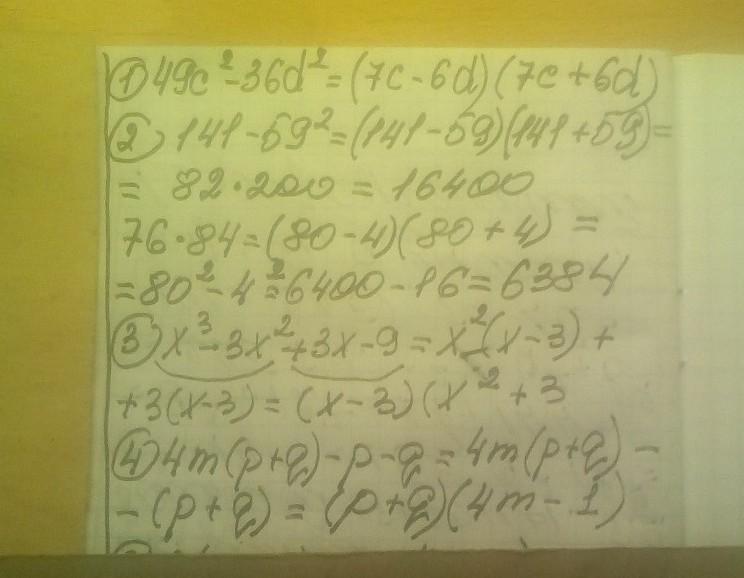 ① 49c² - 36d² = (7c - 6d)(7c + 6d)
② 141 - 59² = (141 - 59)(141 + 59) =
= 82 · 200 = 16400
76 · 84 = (80 - 4)(80 + 4) =
= 80² - 4² = 6400 - 16 = 6384
③ x³ - 3x² + 3x - 9 = x²(x - 3) +
+ 3(x - 3) = (x - 3)(x² + 3
④ 4m(p + q) - p - q = 4m(p + q) -
- (p + q) = (p + q)(4m - 1)